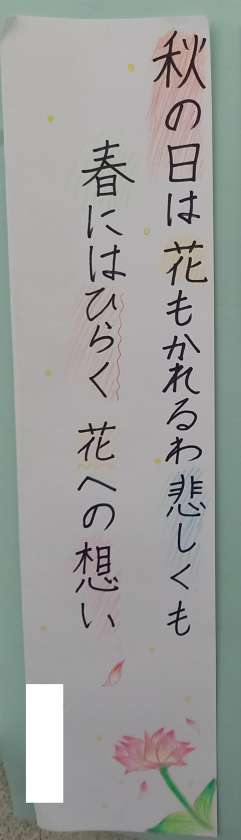 秋の日は 花もかれるわ 悲しくも
春にはひらく 花への想い